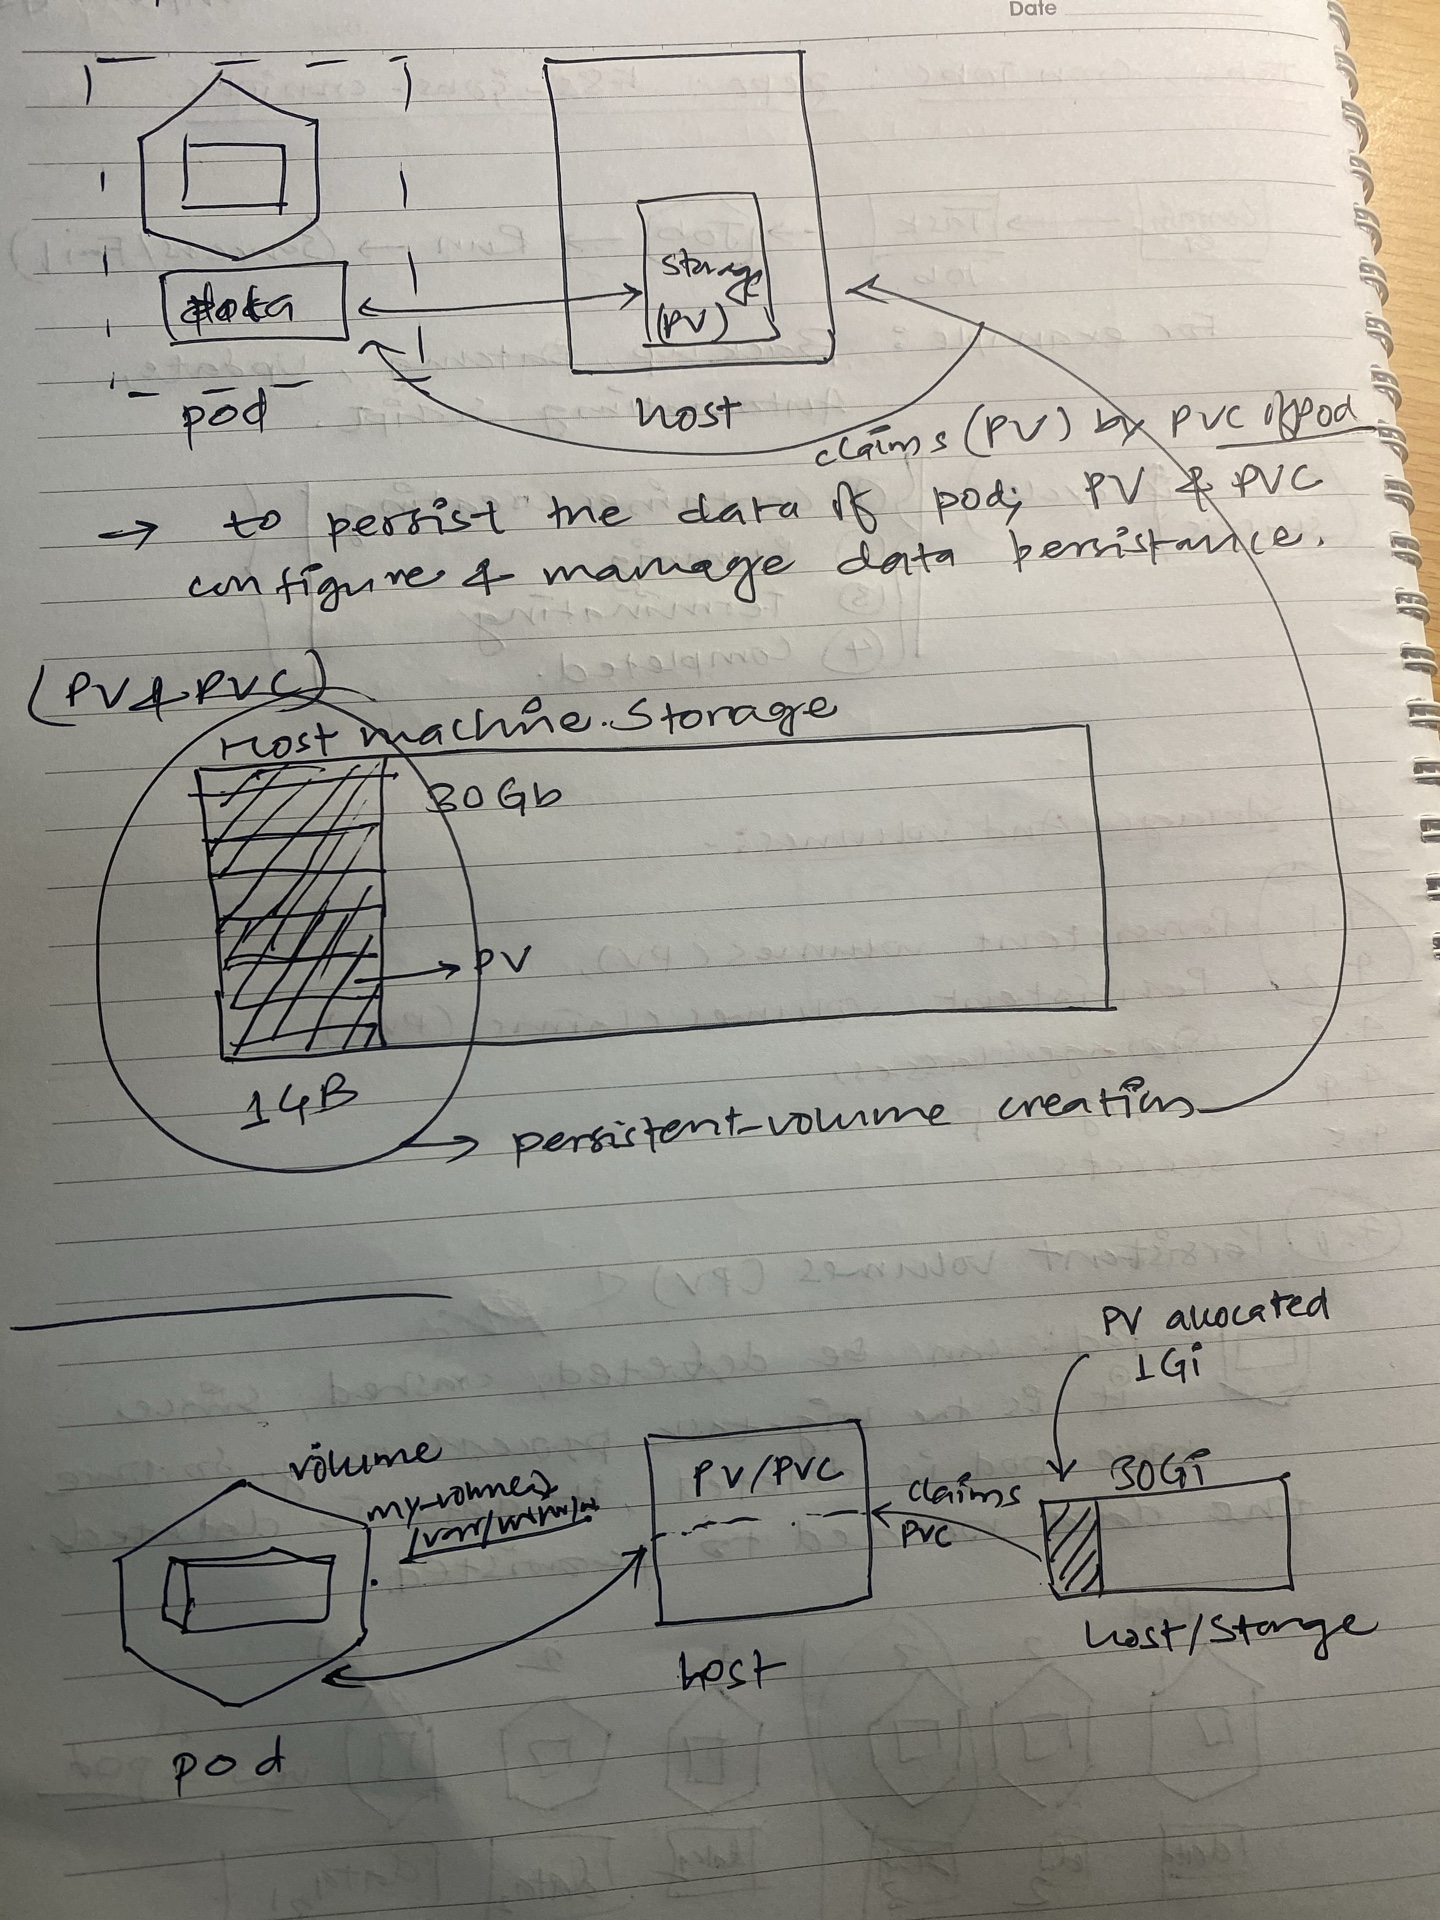 Date
data
storage
(PV)
pod
host
claims (PV) by PVC of pod
→ to persist the data of pod; PV & PVC
configure & manage data persistance.
(PV & PVC)
Host machine Storage
30Gb
→ PV
1GB
→ persistent-volume creation
PV allocated
1Gi
volume
my-volume
PV/PVC
claims
PVC
30Gi
host/Storage
host
pod